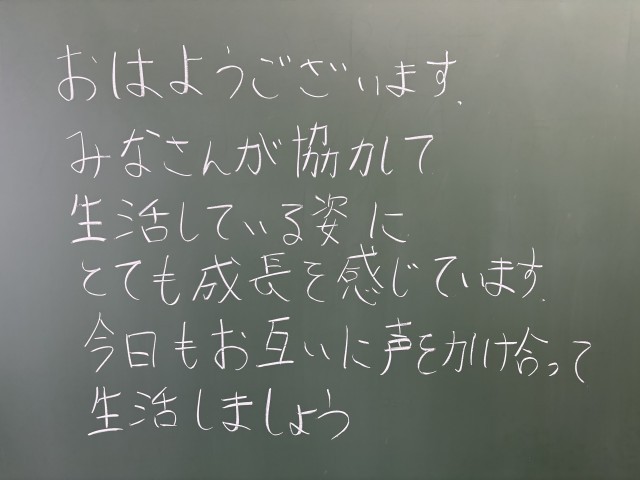 おはようございます.
みなさんが協力して
生活している姿に
とても成長を感じています.
今日もお互いに声をかけ合って
生活しましょう